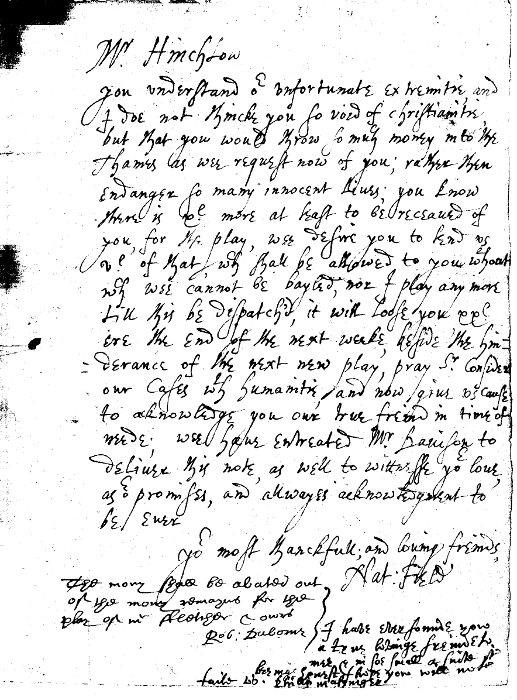 Mr Hinchlow
you vnderstand or vnfortunate extremitie and
I doe not thincke you so void of christianitie,
but that you would throw so much money into the
Thames as wee request now of you; rather then
endanger so many innocent liues; you know
there is xl more at least to be receaued of
you, for the play, wee desire you to lend vs
vl of that, wch shall be allowed to you wthout
wch wee cannot be bayled, nor I play any more
till this be dispatch'd, it will loose you xxl
ere the end of the next weeke, beside the hin=
=derance of the next new play, pray Sr Consider
our Cases wth humanitie, and now giue vs cause
to acknowledge you our true freind in time of
neede; wee haue entreated Mr Dauison to
deliuer this note, as well to wittnesse yor loue,
as or promises, and allwayes acknowledgment to
be euer
yor most thanckfull; and louing freinds,
Nat: Field
The mony shall be abated out
of the mony remayns for the
play of mr Fletcher & owrs
Rob: Daborne
I haue euer founde yow
a true lovinge freinde to
mee & in soe small a suite
beeinge honest I hope yow will not
faile vs.
Philip Massinger